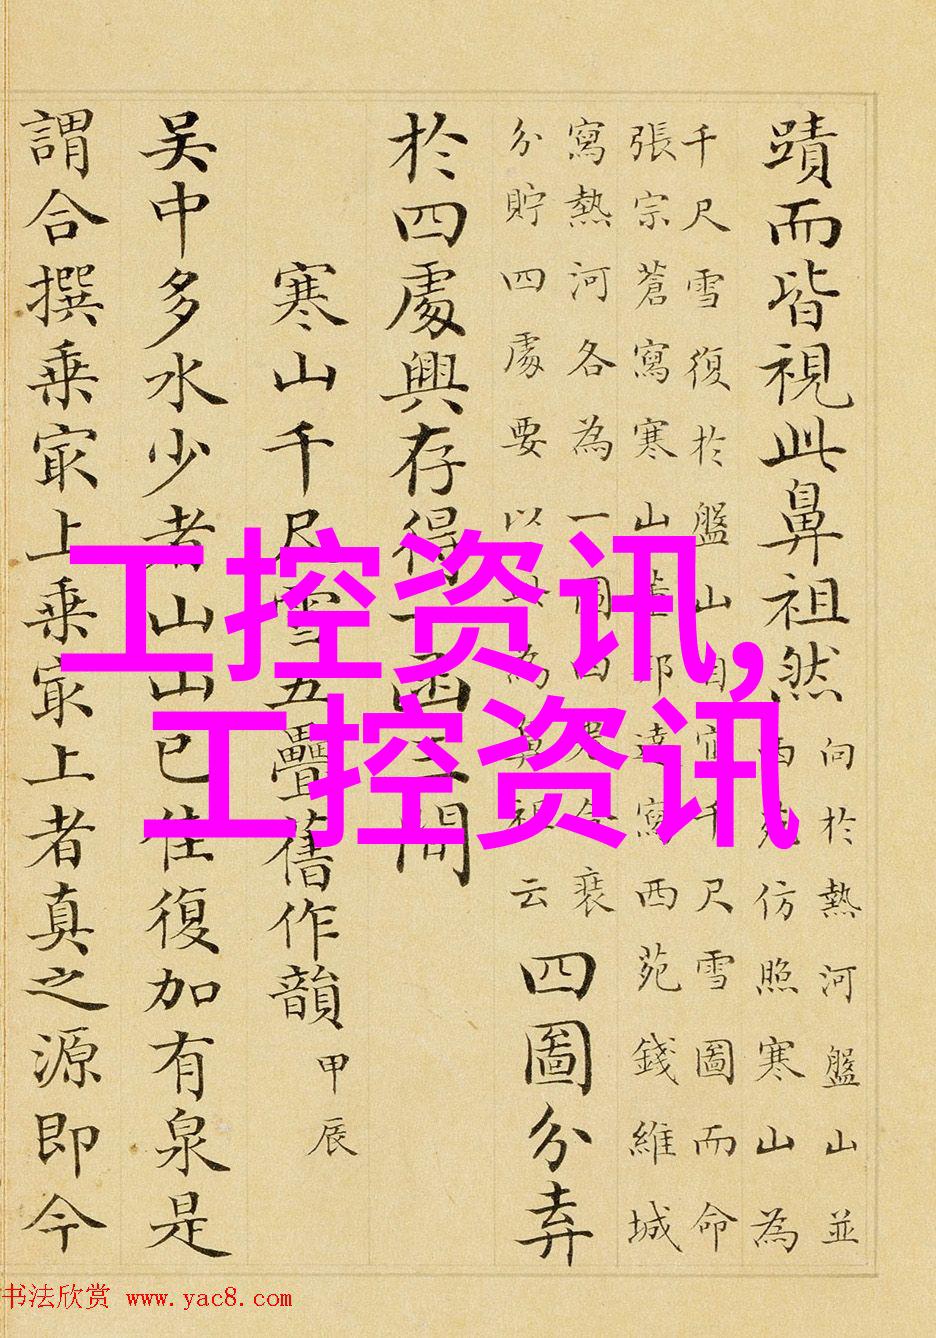 蹟而皆視此鼻祖然
向於熱河盤山並
西苑仿照寒山為
千尺雪復於盤山自千尺雪圖而命
張宗蒼寫寒山邦達寫西苑錢維城
寫熱河各為一圖
分貯四處要以此為鼻祖云
四圖分弆
於四處興存得一函三間
寒山千尺雪五疊舊作韻
甲辰
吳中多水少者山山已佳復加有泉是
謂合撰乘冣上乘冣上者真之源即今
工控资讯,
工控资讯
书法欣赏 www.yac8.com